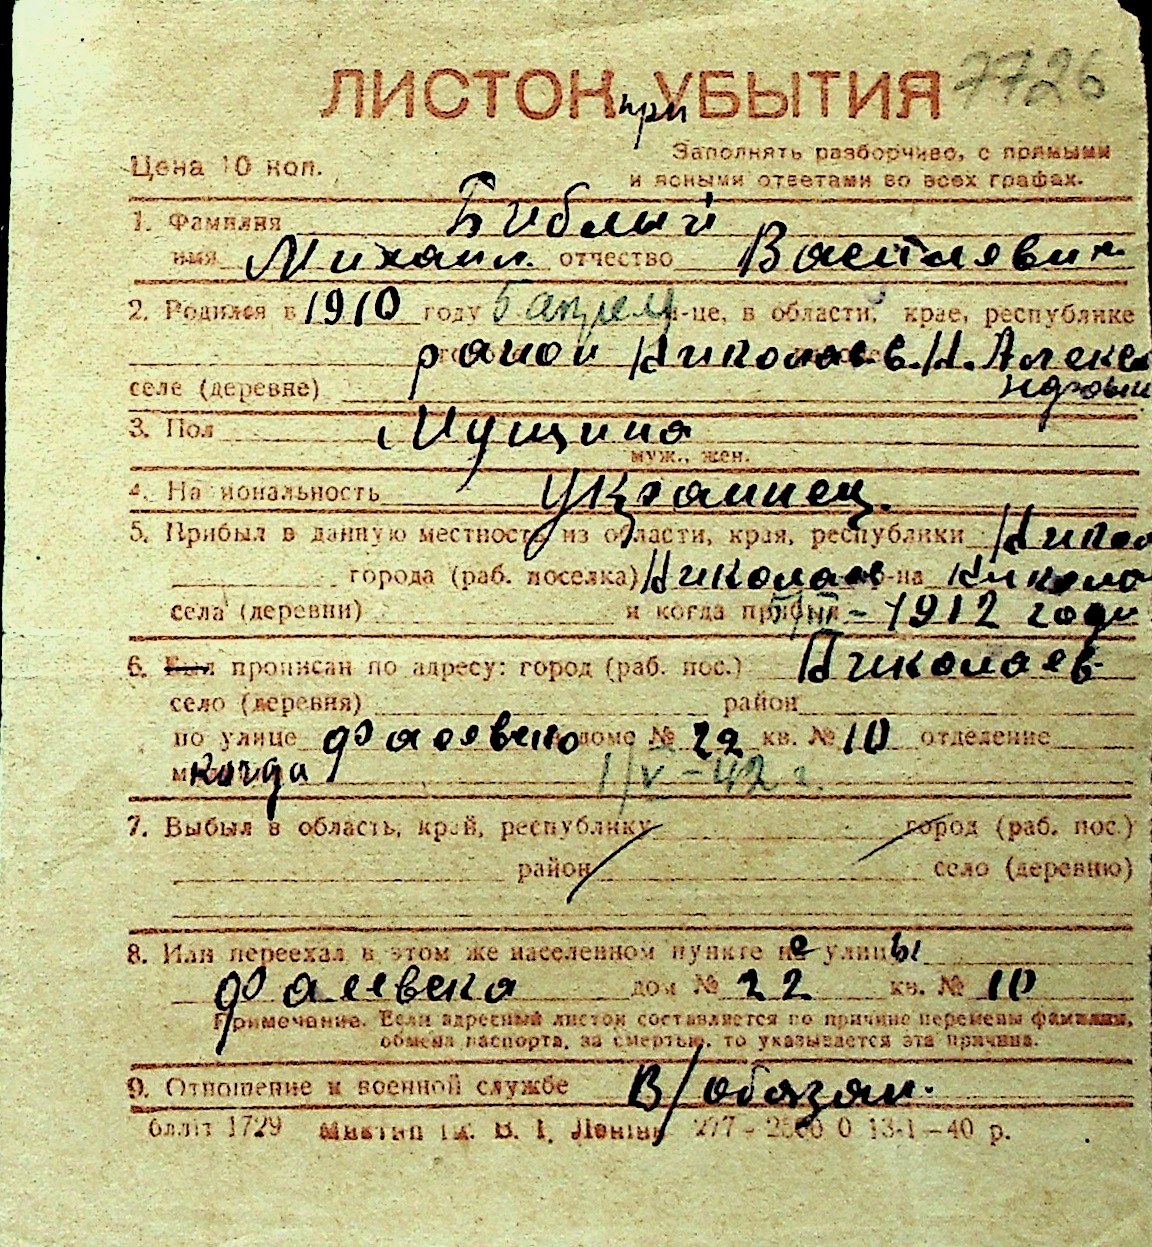 ЛИСТОК УБЫТИЯ 7726
при
Цена 10 коп.
Заполнять разборчиво, с прямыми
и ясными ответами во всех графах.
1. Фамилия Библый
имя Михаил отчество Василевич
2. Родился в 1910 году 5 апреля м-це, в области, крае, республике
район Николаев. Н. Алекса
ндровка
селе (деревне)
3. Пол Мущина
муж., жен.
4. Национальность Украинец.
5. Прибыл в данную местность из области, края, республики Никол
города (раб. поселка) Николаев р-на Никола
села (деревни) и когда прибыл - 1912 году
6. Был прописан по адресу: город (раб. пос.) Николаев
село (деревня) район
по улице Фалеевско доме № 22 кв. № 10 отделение
когда 1/V-42 г.
7. Выбыл в область, край, республику город (раб. пос.)
район село (деревню)
8. Или переехал в этом же населенном пункте не улицы
Фалеевска дом № 22 кв. № 10
Примечание. Если адресный листок составляется по причине перемены фамилии,
обмена паспорта, за смертью, то указывается эта причина.
9. Отношение к военной службе В/обязан.
1729 277 - 2500 0 13-1-40 р.